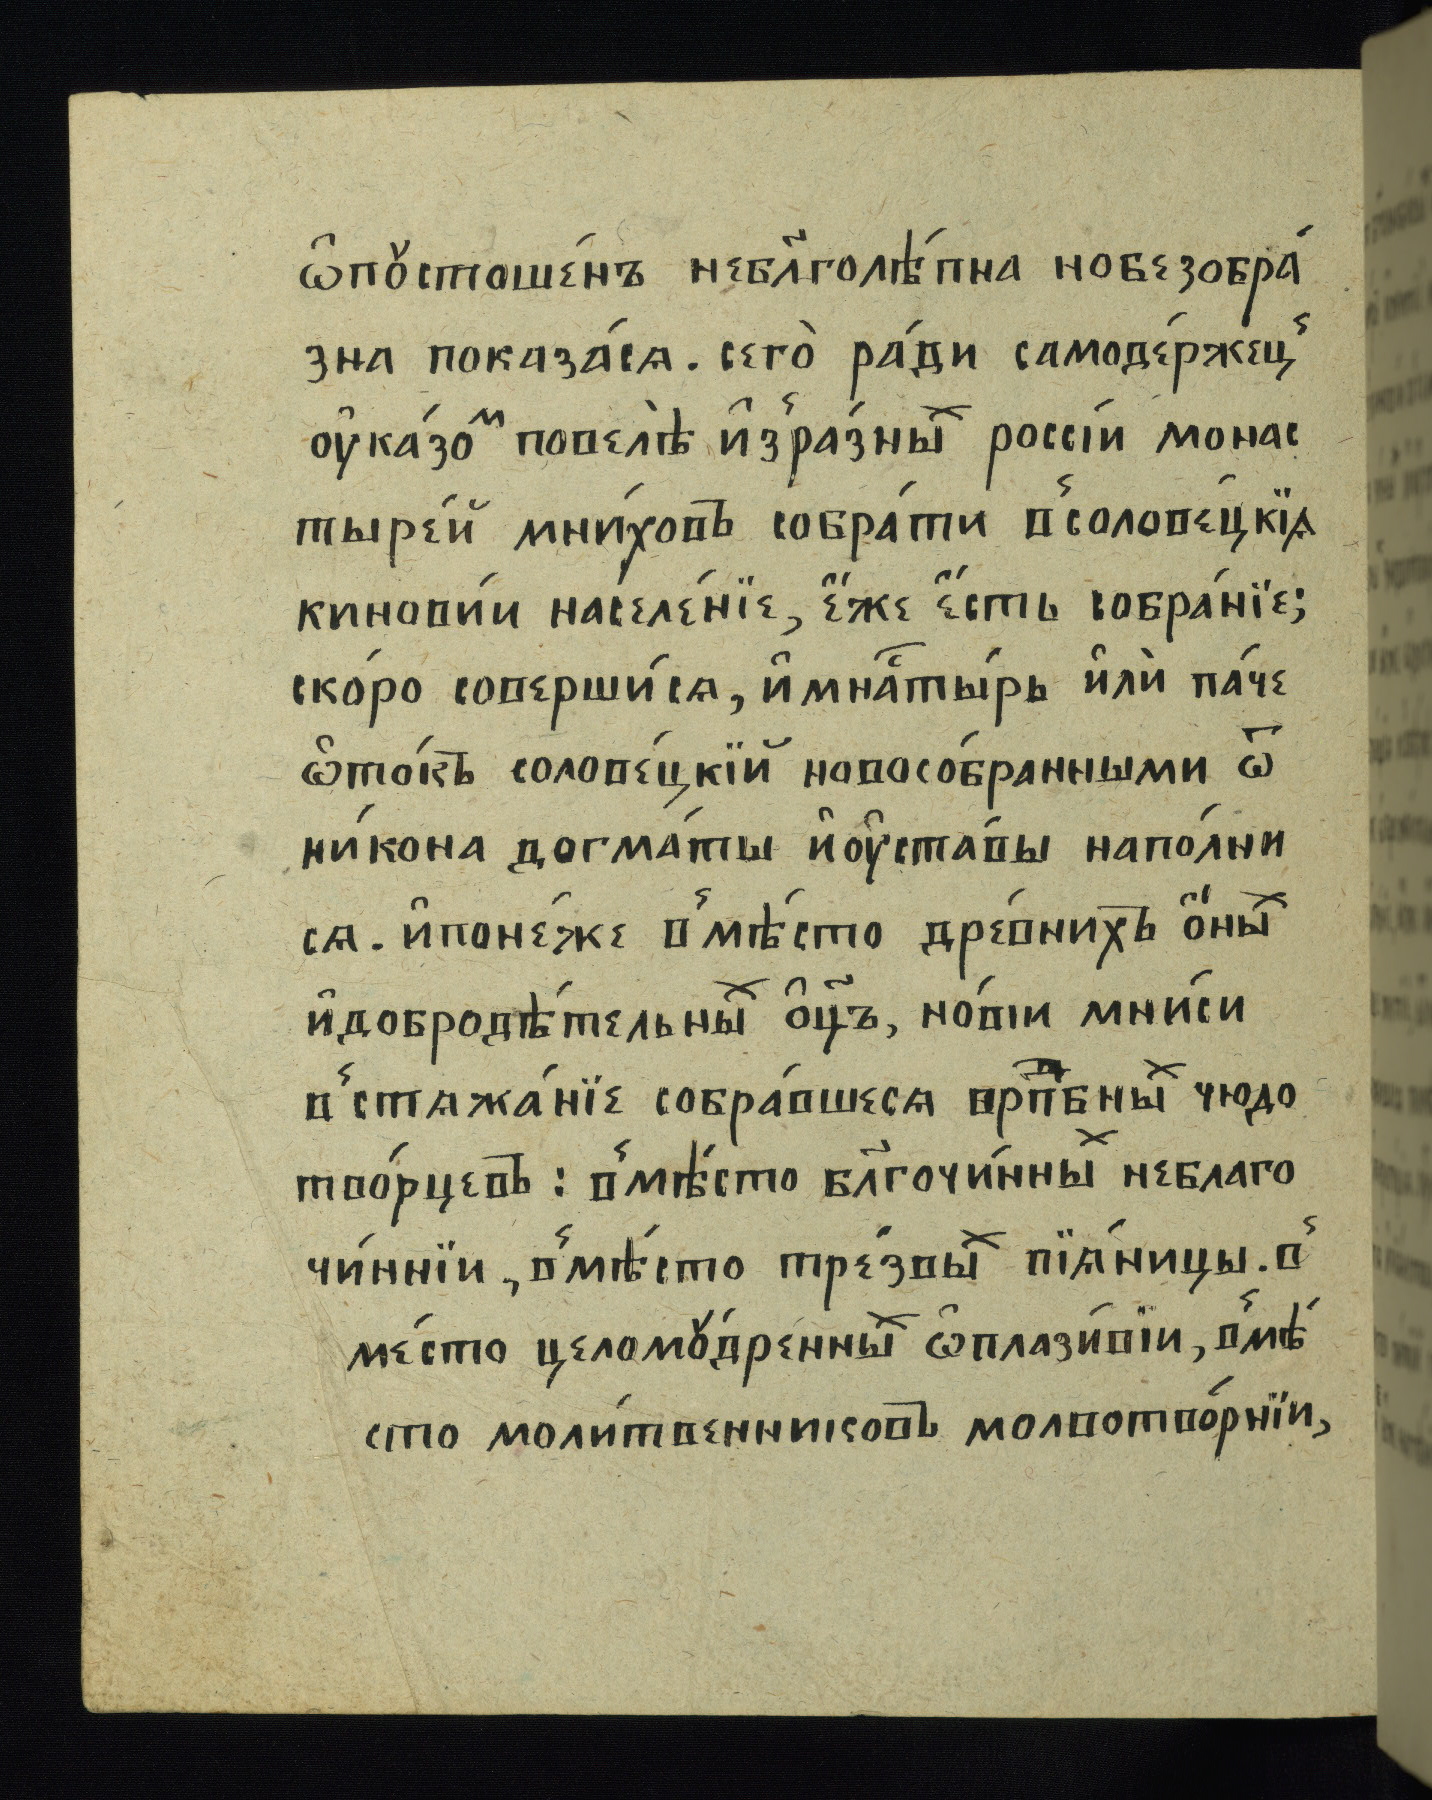 ѡ҆пꙋстоше́нъ небл҃голѣ́пна нобезобра́
зна показа́сѧ. сегѡ̀ ра́ди самоде́ржец̾
ѹ҆ка́зоⷨ повелѣ̀ и҆з̾ра́зныⷯ россі́и монас
тыре́й мни́ховъ собра́ти в̾солове́цкїѧ
кинові́и населе́нїе, є҆́же є҆́сть собра́нїе;
ско́ро соверши́сѧ, и҆мнⷭ҇ты́рь и҆лѝ па́че
ѡ҆то́къ солове́цкїй новосо́бранными ѿ
ни́кона догма́ты и҆ѹ҆ста́вы напо́лни
сѧ. и҆поне́же в̾мѣ́сто дре́внихъ ѻ҆́ныⷯ
и҆добродѣ́тельныⷯ ѻ҆ц҃ъ, но́вїи мни́си
в̾стѧжа́нїе собра́вшесѧ врпⷣбныⷯ чюдо
тво́рцевъ: в̾мѣ́сто бл҃гочи́нныⷯ неблаго
чи́ннїи, в̾мѣ́сто тре́звыⷯ пїѧ́ницы. в̾
ме́сто целомꙋ́дренныⷯ ѡ҆плази́вїи, в̾мѣ́
сто моли́твенниковъ молвотво́рнїи,